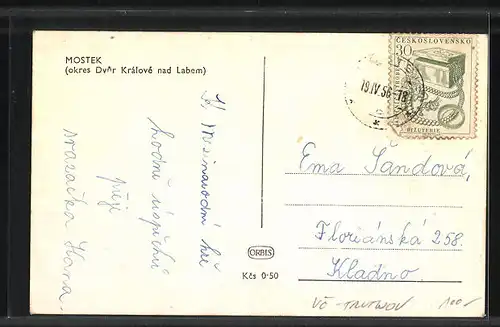 MOSTEK
(okres Dvůr Králové nad Labem)
K Mezinárodní hře
hodně úspěchů
přeje
svazačka Hana.
ČESKOSLOVENSKO
30
BIŽUTERIE
19.IV.56-18
Ema Šandová,
Floriánská 258.
Kladno.
ORBIS
Kčs 0·50
VČ - TRUTNOV
100,-